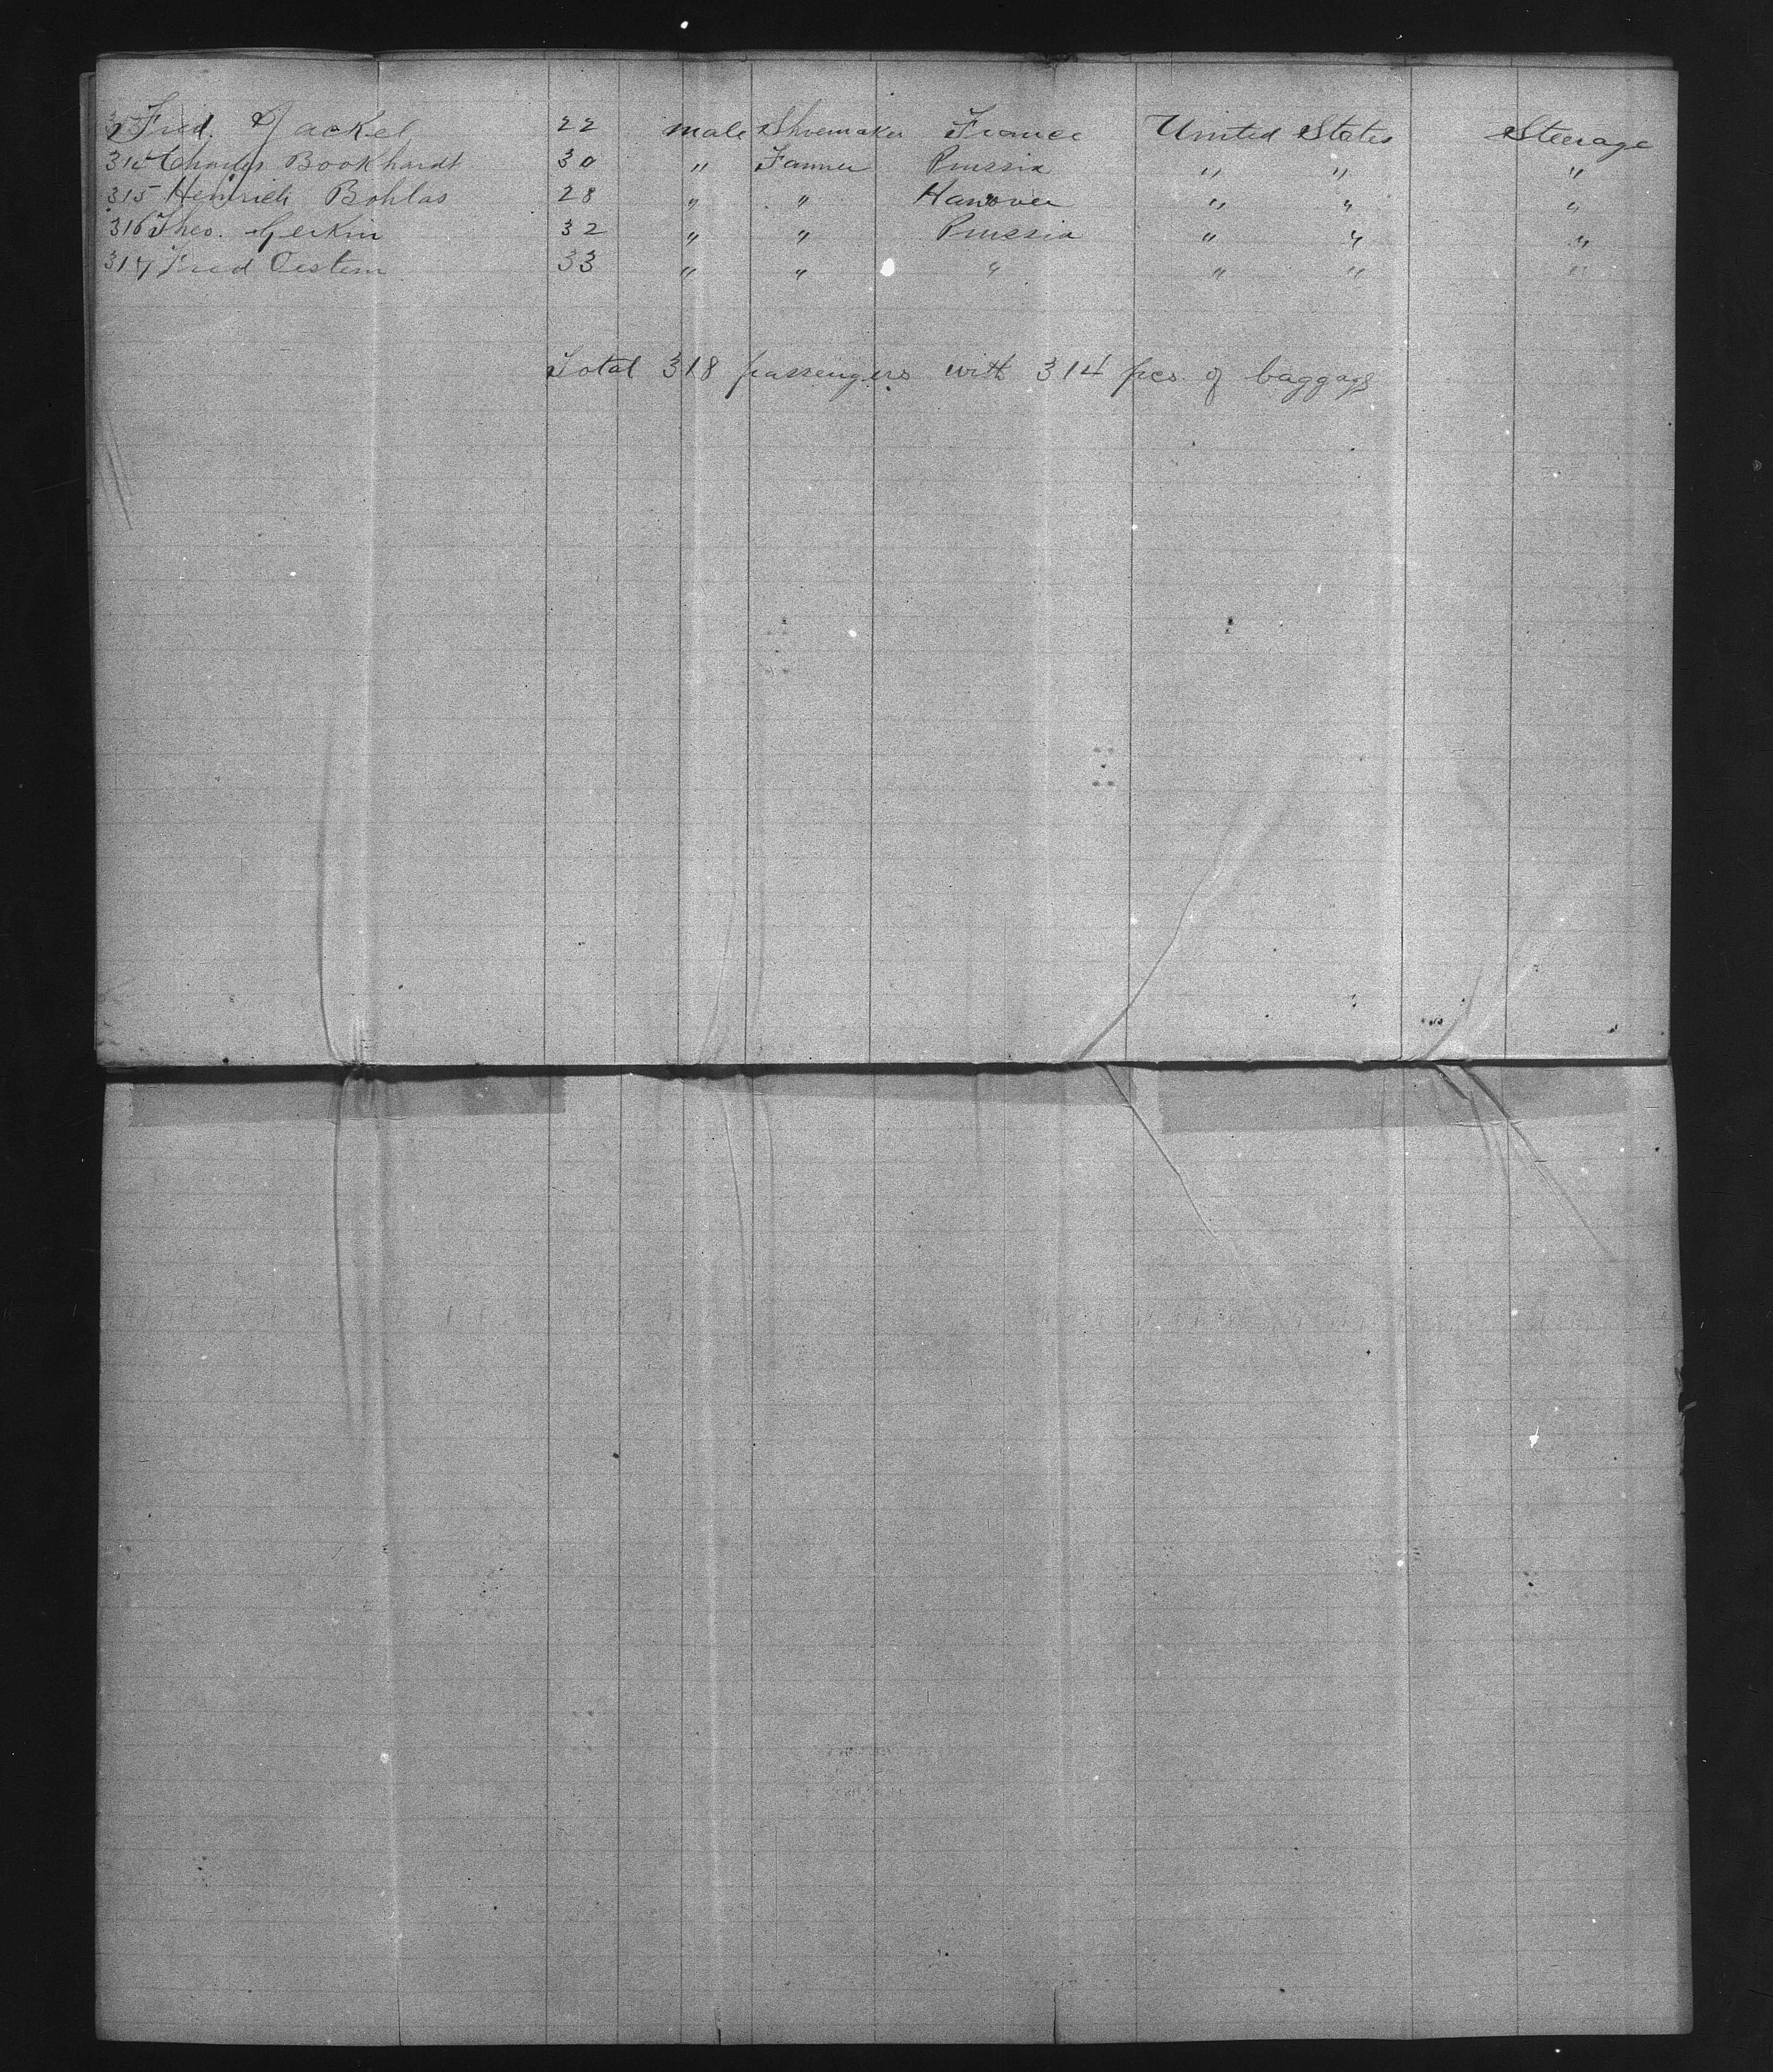 Fred. Jackel 22 male Shoemaker France United States Steerage
314 Charles Bookhardt 30 " Farmer Prussia " " "
315 Heinrich Bohlas 28 " " Hanover " " "
316 Theo. Gerkin 32 " " Prussia " " "
317 Fred Oestern 33 " " " " " "
Total 318 passengers with 314 pcs. of baggage